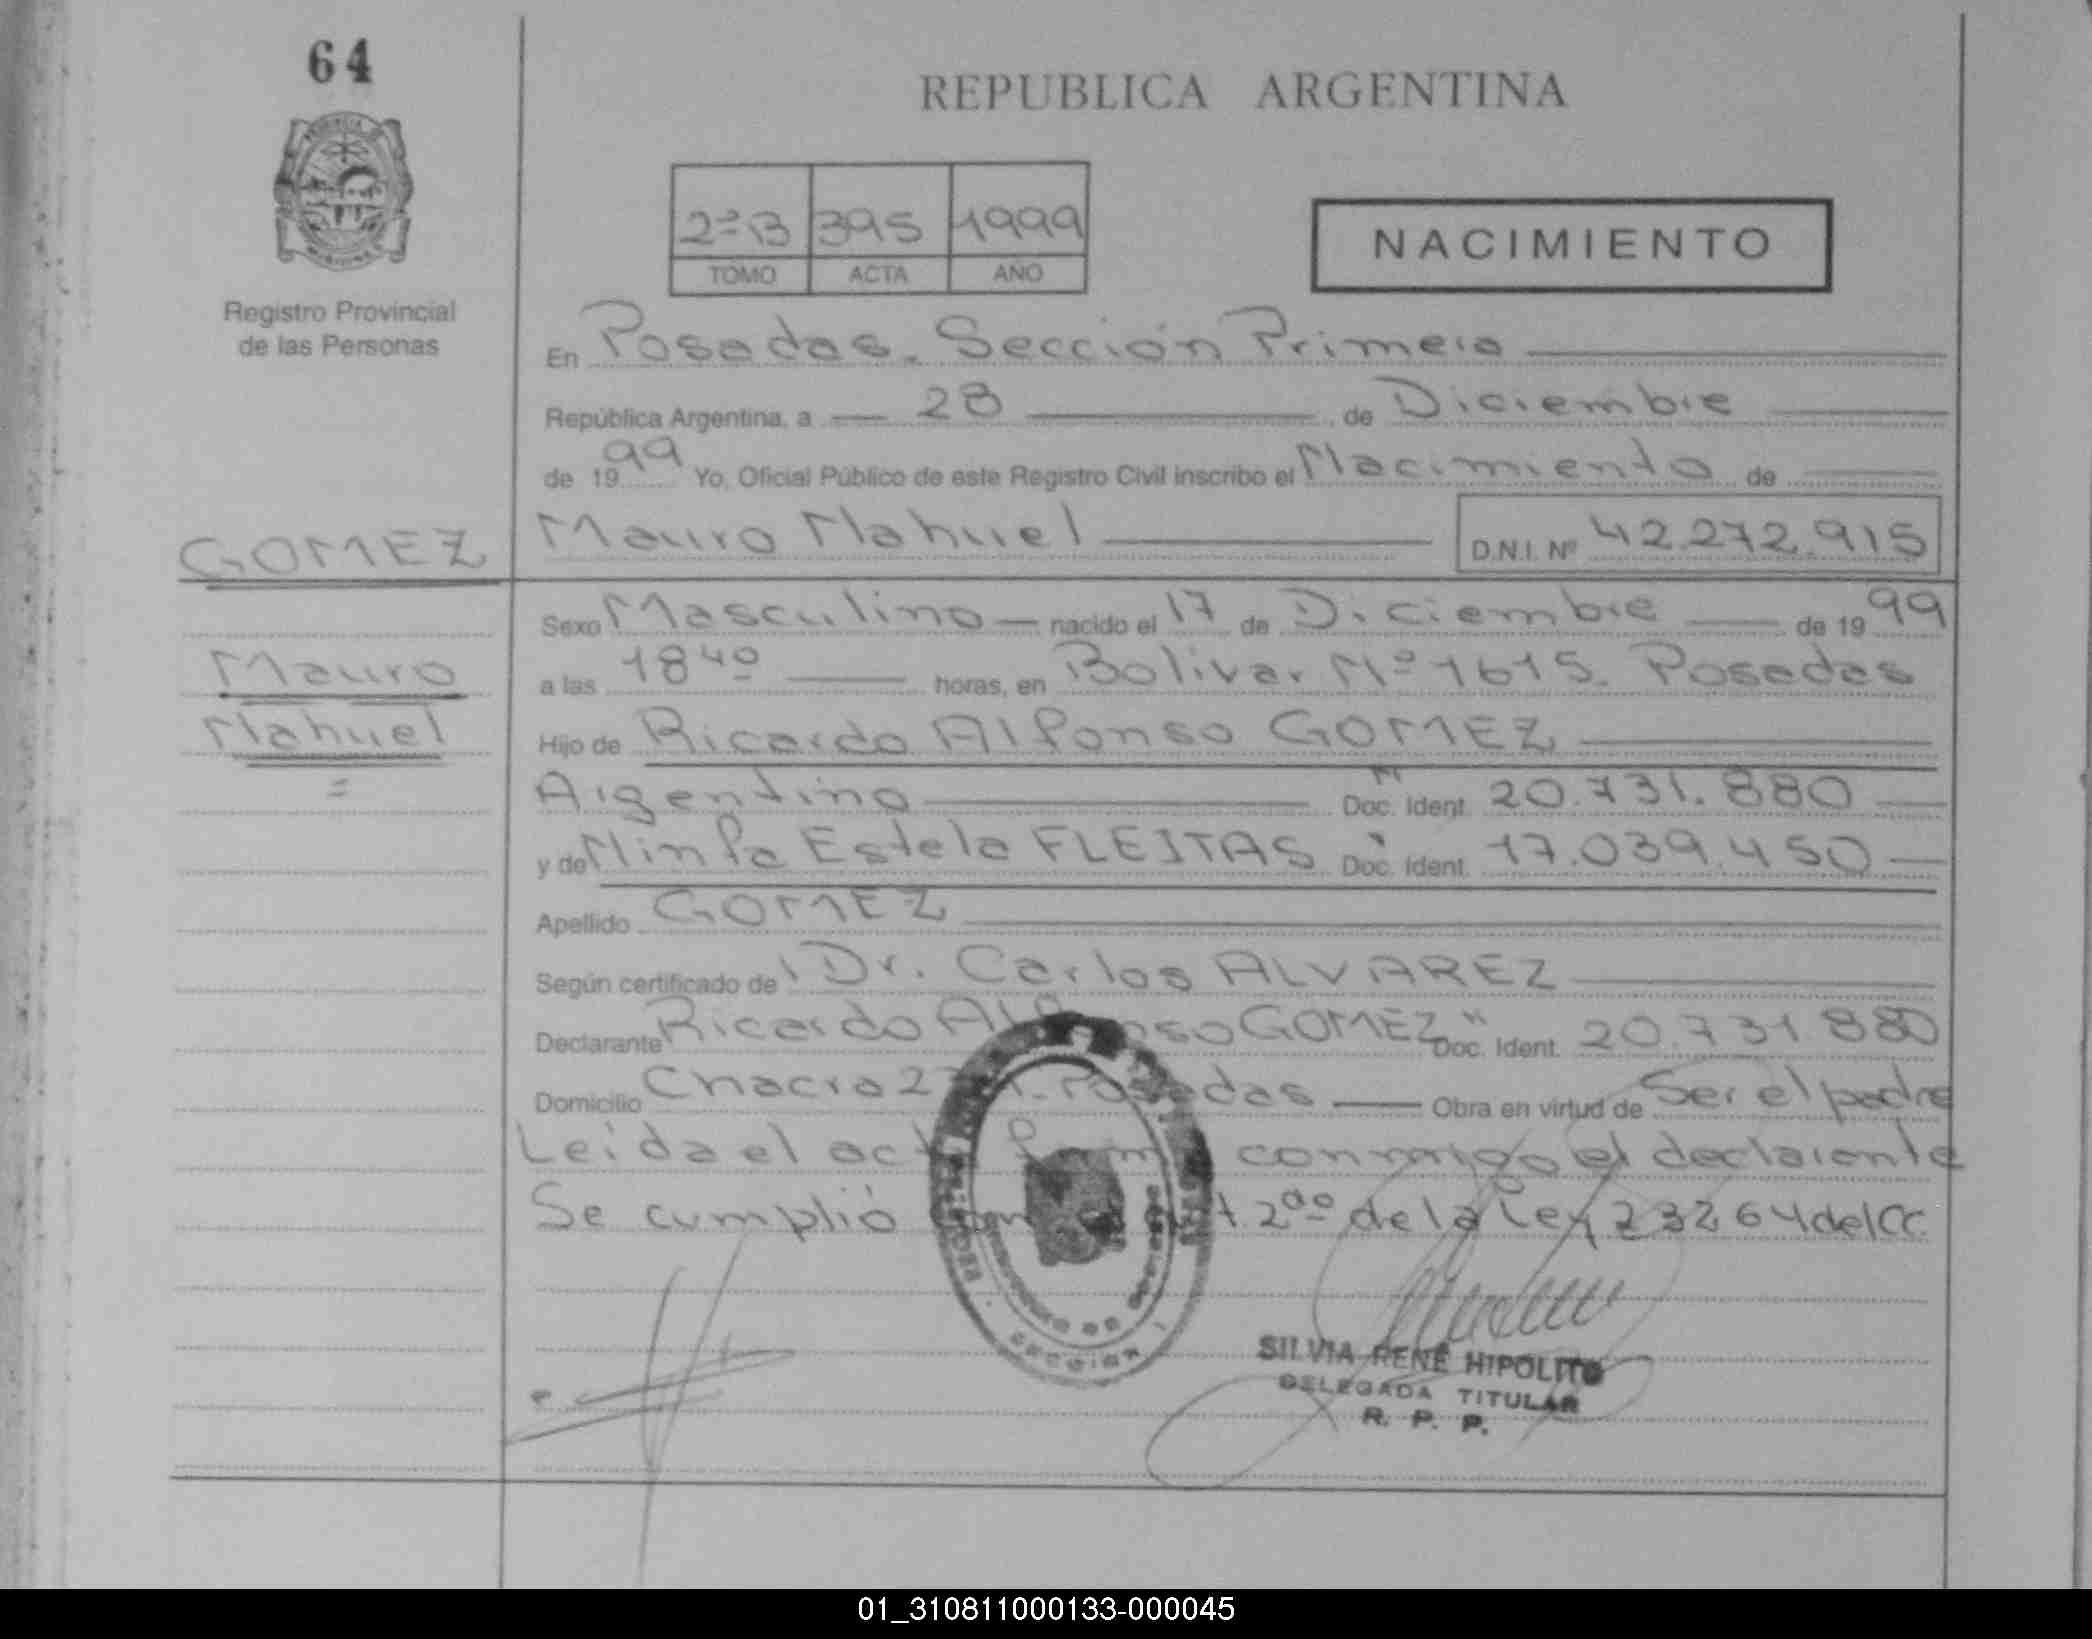 64
REPUBLICA ARGENTINA
2ª B 395 1999
TOMO ACTA AÑO
NACIMIENTO
Registro Provincial
de las Personas
En Posadas. Sección Primera
República Argentina, a 28 de Diciembre
de 1999 Yo, Oficial Público de este Registro Civil inscribo el Nacimiento de
GOMEZ Mauro Nahuel D.N.I. Nº 42.272.915
Sexo Masculino nacido el 17 de Diciembre de 1999
Mauro a las 18⁴⁰ horas, en Bolivar Nº 1615. Posadas
Nahuel Hijo de Ricardo Alfonso GOMEZ
Argentino Doc. Ident. 20.731.880
y de Ninfa Estela FLEITAS Doc. Ident. 17.039.450
Apellido GOMEZ
Según certificado de Dr. Carlos ALVAREZ
Declarante Ricardo Alfonso GOMEZ Doc. Ident. 20.731.880
Domicilio Chacra Posadas Obra en virtud de Ser el padre
Leida el acta conmigo el declarante
Se cumplió 2do de la Ley 23264 del CC.
SECCION 1
SILVIA RENÉ HIPOLITO
DELEGADA TITULAR
R. P. P.
01_310811000133-000045